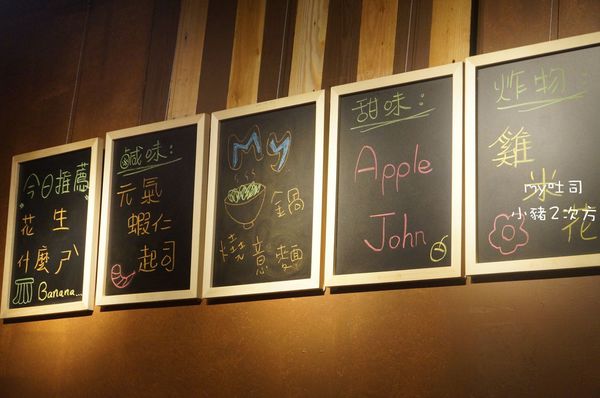 今日推薦
花生
什麼ㄕˊ
Banana...
鹹味:
元氣
蝦仁
起司
My
鍋
燒意麵
甜味:
Apple
John
炸物:
雞
米
花
my吐司
小豬2次方